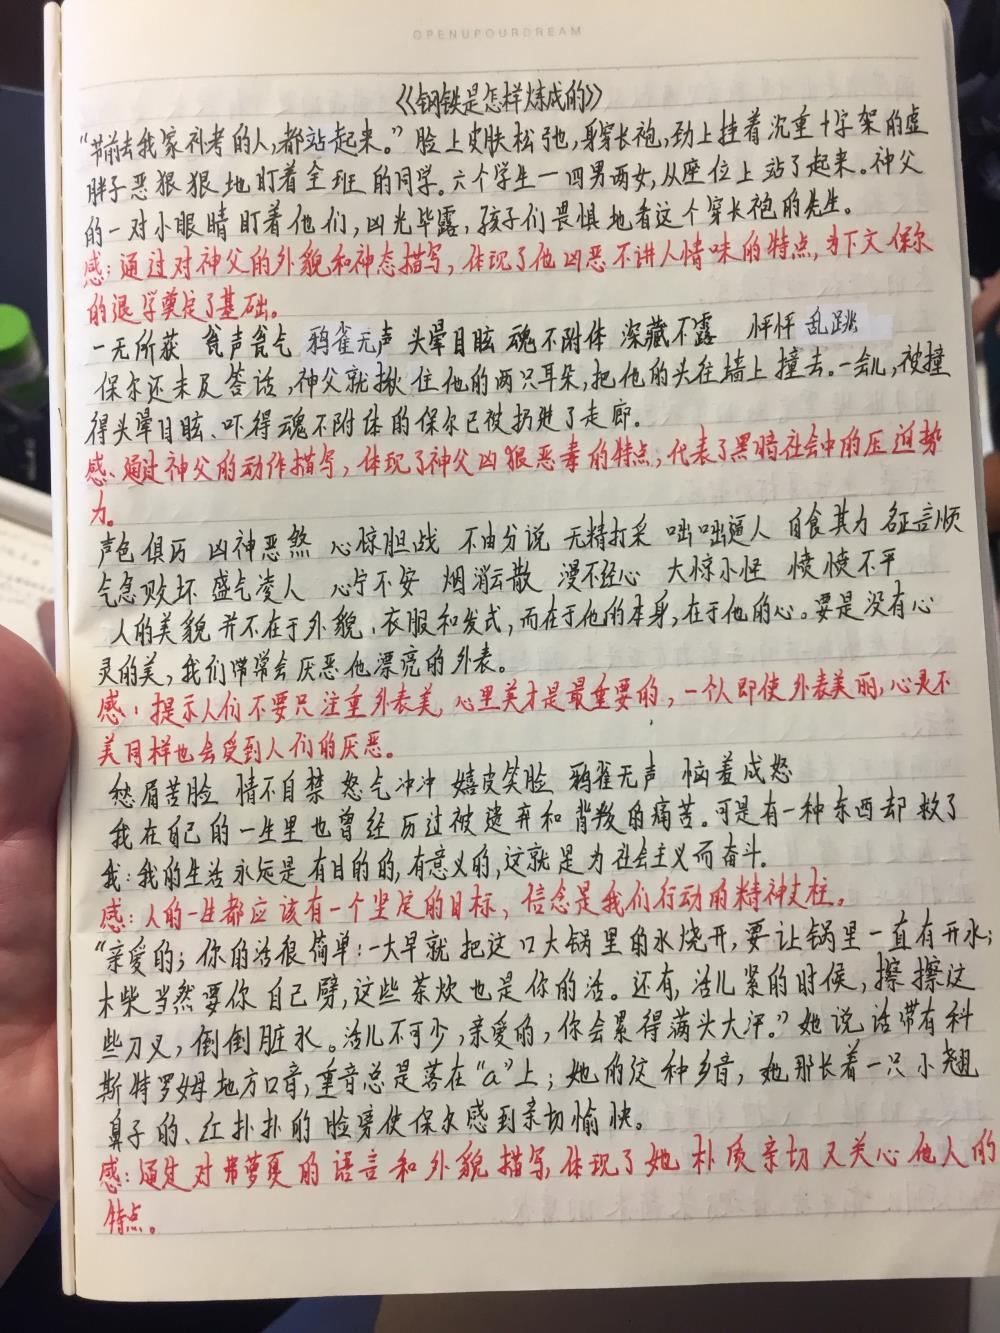 OPENUPOURDREAM
《钢铁是怎样炼成的》
“节前去我家补考的人,都站起来。”脸上皮肤松弛,身穿长袍,劲上挂着沉重十字架的虚
胖子恶狠狠地盯着全班的同学。六个学生一四男两女,从座位上站了起来。神父
的一对小眼睛盯着他们,凶光毕露,孩子们畏惧地看这个穿长袍的先生。
感:通过对神父的外貌和神态描写,体现了他凶恶不讲人情味的特点,为下文保尔
的退学奠定了基础。
一无所获 瓮声瓮气 鸦雀无声 头晕目眩 魂不附体 深藏不露 怦怦乱跳
保尔还未及答话,神父就揪住他的两只耳朵,把他的头往墙上撞去。一会儿,被撞
得头晕目眩、吓得魂不附体的保尔已被扔进了走廊。
感:通过神父的动作描写,体现了神父凶狠恶毒的特点,代表了黑暗社会中的压迫势
力。
声色俱厉 凶神恶煞 心惊胆战 不由分说 无精打采 咄咄逼人 自食其力 名正言顺
气急败坏 盛气凌人 心宁不安 烟消云散 漫不经心 大惊小怪 愤愤不平
人的美貌并不在于外貌、衣服和发式,而在于他的本身,在于他的心。要是没有心
灵的美,我们常常会厌恶他漂亮的外表。
感:提示人们不要只注重外表美,心里美才是最重要的,一个人即使外表美丽,心灵不
美同样也会受到人们的厌恶。
愁眉苦脸 情不自禁 怒气冲冲 嬉皮笑脸 鸦雀无声 恼羞成怒
我在自己的一生里也曾经历过被遗弃和背叛的痛苦。可是有一种东西却救了
我:我的生活永远是有目的的,有意义的,这就是为社会主义而奋斗.
感:人的一生都应该有一个坚定的目标,信念是我们行动的精神支柱。
“亲爱的;你的活很简单:一大早就把这口大锅里的水烧开,要让锅里一直有开水;
木柴当然要你自己劈,这些茶炊也是你的活。还有,活儿紧的时候,擦擦这
些刀叉,倒倒脏水。活儿不可少,亲爱的,你会累得满头大汗。”她说话带有科
斯特罗姆地方口音,重音总是落在“a”上;她的这种乡音,她那长着一只小翘
鼻子的、红扑扑的脸旁使保尔感到亲切愉快。
感:通过对弗萝夏的语言和外貌描写,体现了她朴质亲切又关心他人的
特点。